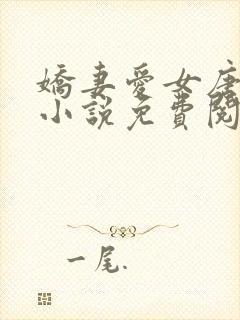 嬌妻愛女唐
小說免費閱
一尾.